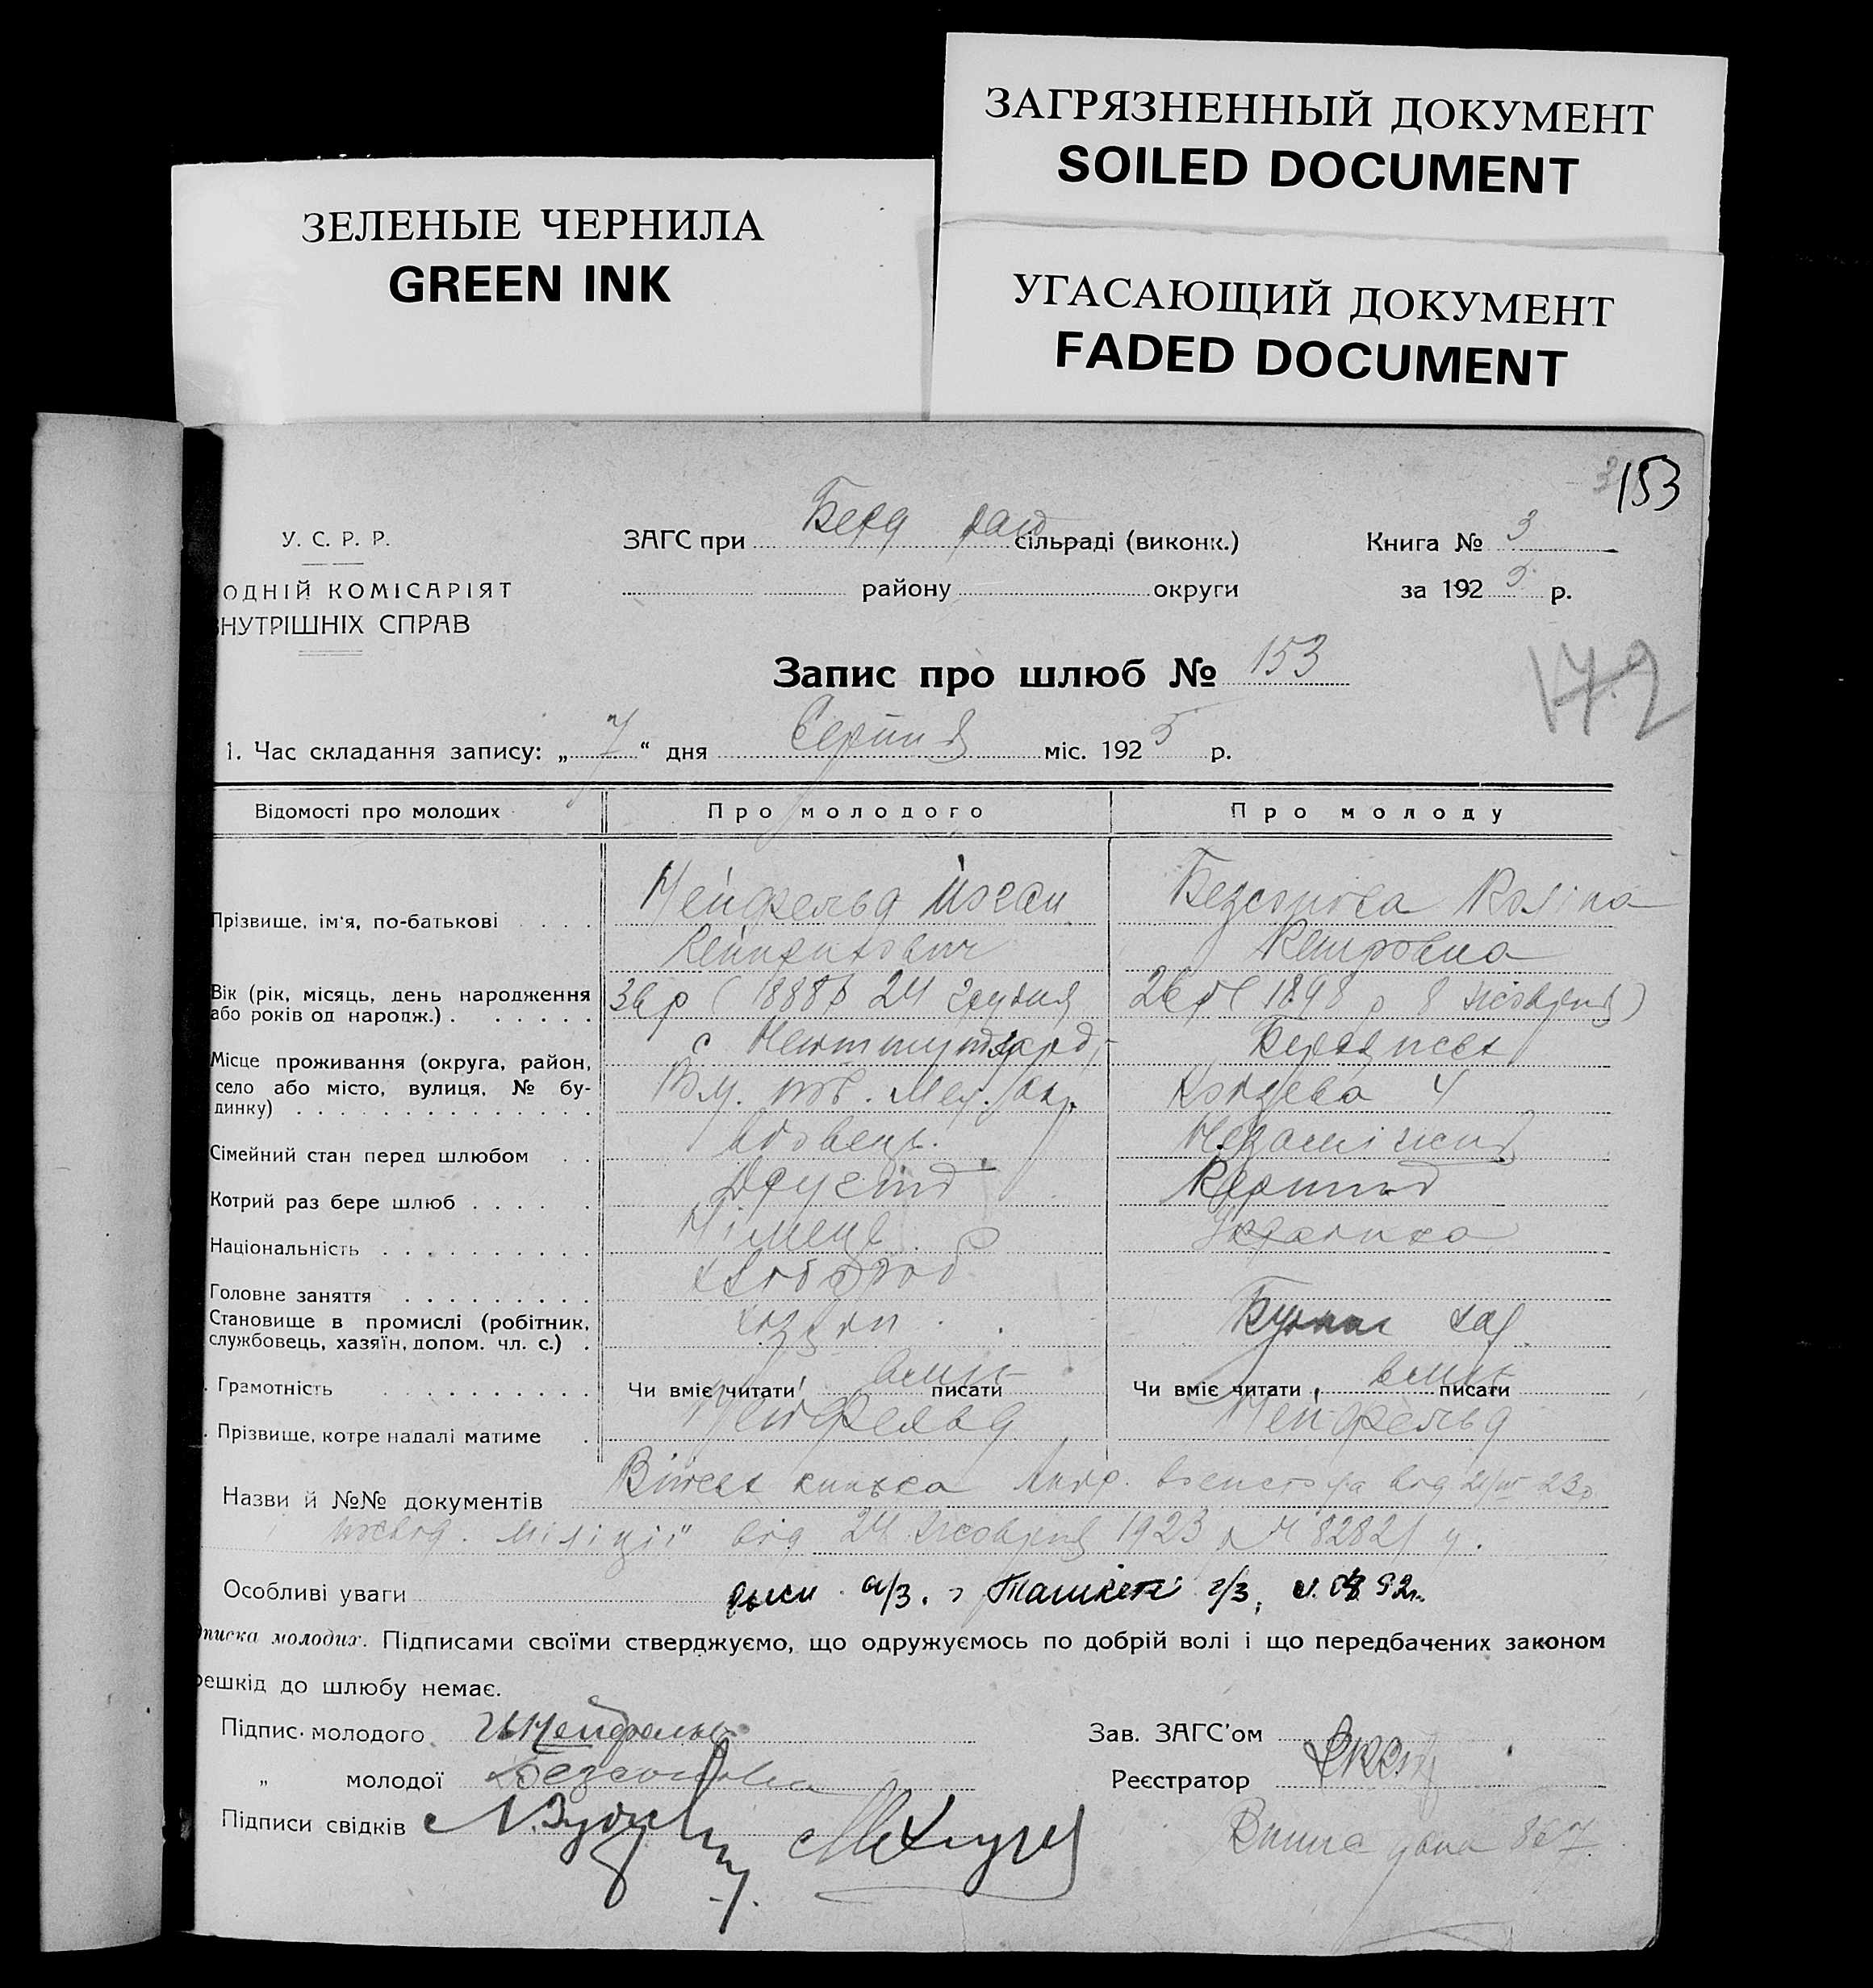 ЗАГРЯЗНЕННЫЙ ДОКУМЕНТ
SOILED DOCUMENT
ЗЕЛЕНЫЕ ЧЕРНИЛА
GREEN INK
УГАСАЮЩИЙ ДОКУМЕНТ
FADED DOCUMENT
153
У. С. Р. Р.
ОДНІЙ КОМІСАРІЯТ
ВНУТРІШНІХ СПРАВ
ЗАГС при Берд рай сільраді (виконк.)
району округи
Книга № 3
за 1925 р.
Запис про шлюб № 153
172
1. Час складання запису: „7“ дня Серпня міс. 1925 р.
Відомості про молодих Про молодого Про молоду
Прізвище, ім'я, по-батькові Нейфельд Йоган Безсонова Поліна
Петровна
Вік (рік, місяць, день народження
або років од народж.) 36 р ( 1888 24 грудня 26 р ( 1898 р 8 жовтня)
Місце проживання (округа, район,
село або місто, вулиця, № бу-
динку) с Бердянськ
4
Сімейний стан перед шлюбом вдовець. Незаміжня
Котрий раз бере шлюб Другий Перший
Національність Німець Українка
Головне заняття хлібороб
Становище в промислі (робітник,
службовець, хазяїн, допом. чл. с.) хазяїн
Грамотність Чи вміє читати, писати вміє Чи вміє читати, писати вміє
Прізвище, котре надалі матиме Нейфельд Нейфельд
Назви й №№ документів Військ книжка від 23р
посвід. міліції від 24 жовтня 1923 р № 8282
Особливі уваги г/з,
дписка молодих. Підписами своїми стверджуємо, що одружуємось по добрій волі і що передбачених законом
решкід до шлюбу немає.
Підпис молодого Нейфельд
„ молодої Безсонова
Підписи свідків
Зав. ЗАГС'ом
Реєстратор
дана 867